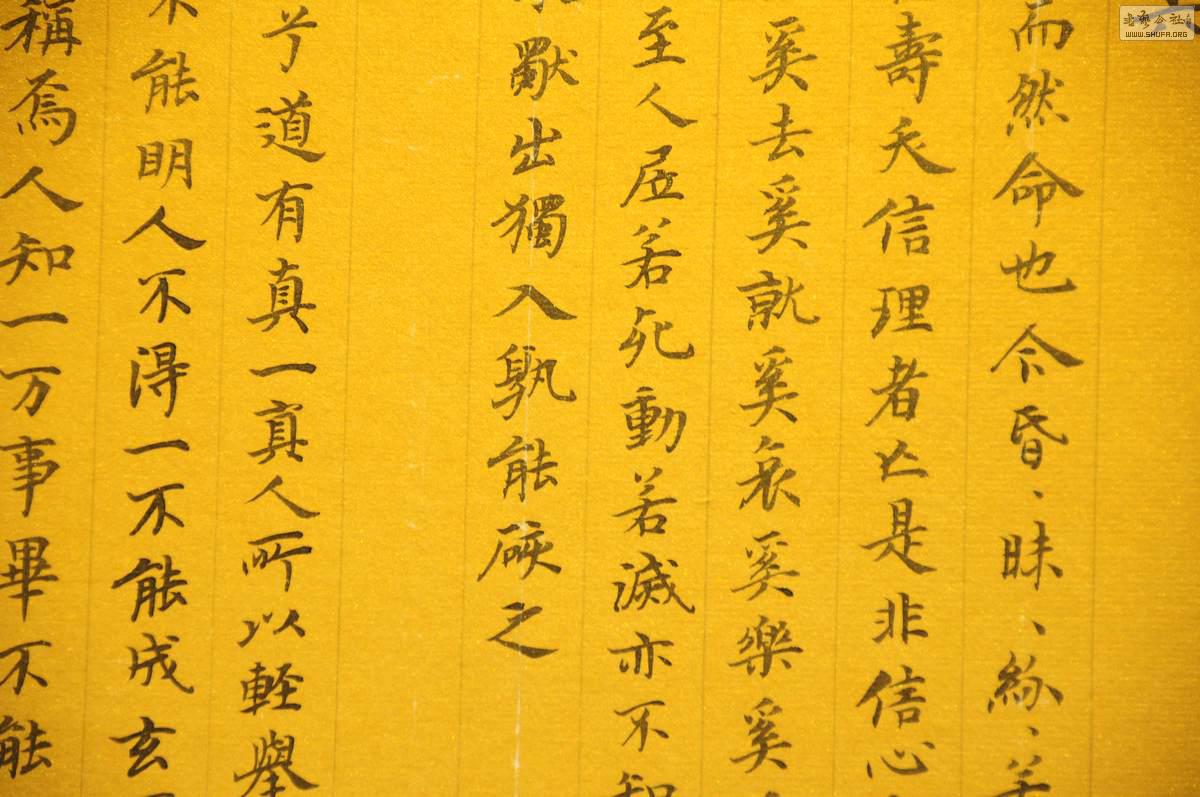 而然命也今昏、昧、紛、若
壽夭信理者亡是非信心
奚去奚就奚哀奚樂奚
至人居若死動若滅亦不知
出獨入孰能礙之
兮道有真一真人所以輕舉
不能明人不得一不能成玄
稱焉人知一万事畢不能
书艺公社
WWW.SHUFA.ORG